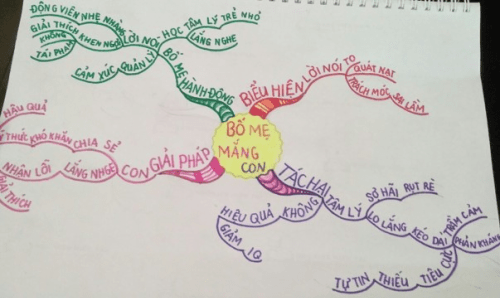 BỐ MẸ
MẮNG
CON
BỐ MẸ HÀNH ĐỘNG
LỜI NÓI
ĐỘNG VIÊN NHẸ NHÀNG
GIẢI THÍCH KHEN NGỢI
KHÔNG
TÁI PHẠM
HỌC TÂM LÝ TRẺ NHỎ
LẮNG NGHE
QUẢN LÝ
CẢM XÚC
BIỂU HIỆN LỜI NÓI TO
QUÁT NẠT
TRÁCH MÓC SAI LẦM
TÁC HẠI
TÂM LÝ
SỢ HÃI RỤT RÈ
LO LẮNG KÉO DÀI TRẦM CẢM
PHẢN KHÁNG
TIÊU CỰC
THIẾU
TỰ TIN
KHÔNG
HIỆU QUẢ
GIẢM IQ
GIẢI PHÁP
CON
CHIA SẺ
KHÓ KHĂN
THỨC
HẬU QUẢ
LẮNG NHGE
NHẬN LỖI
THÍCH